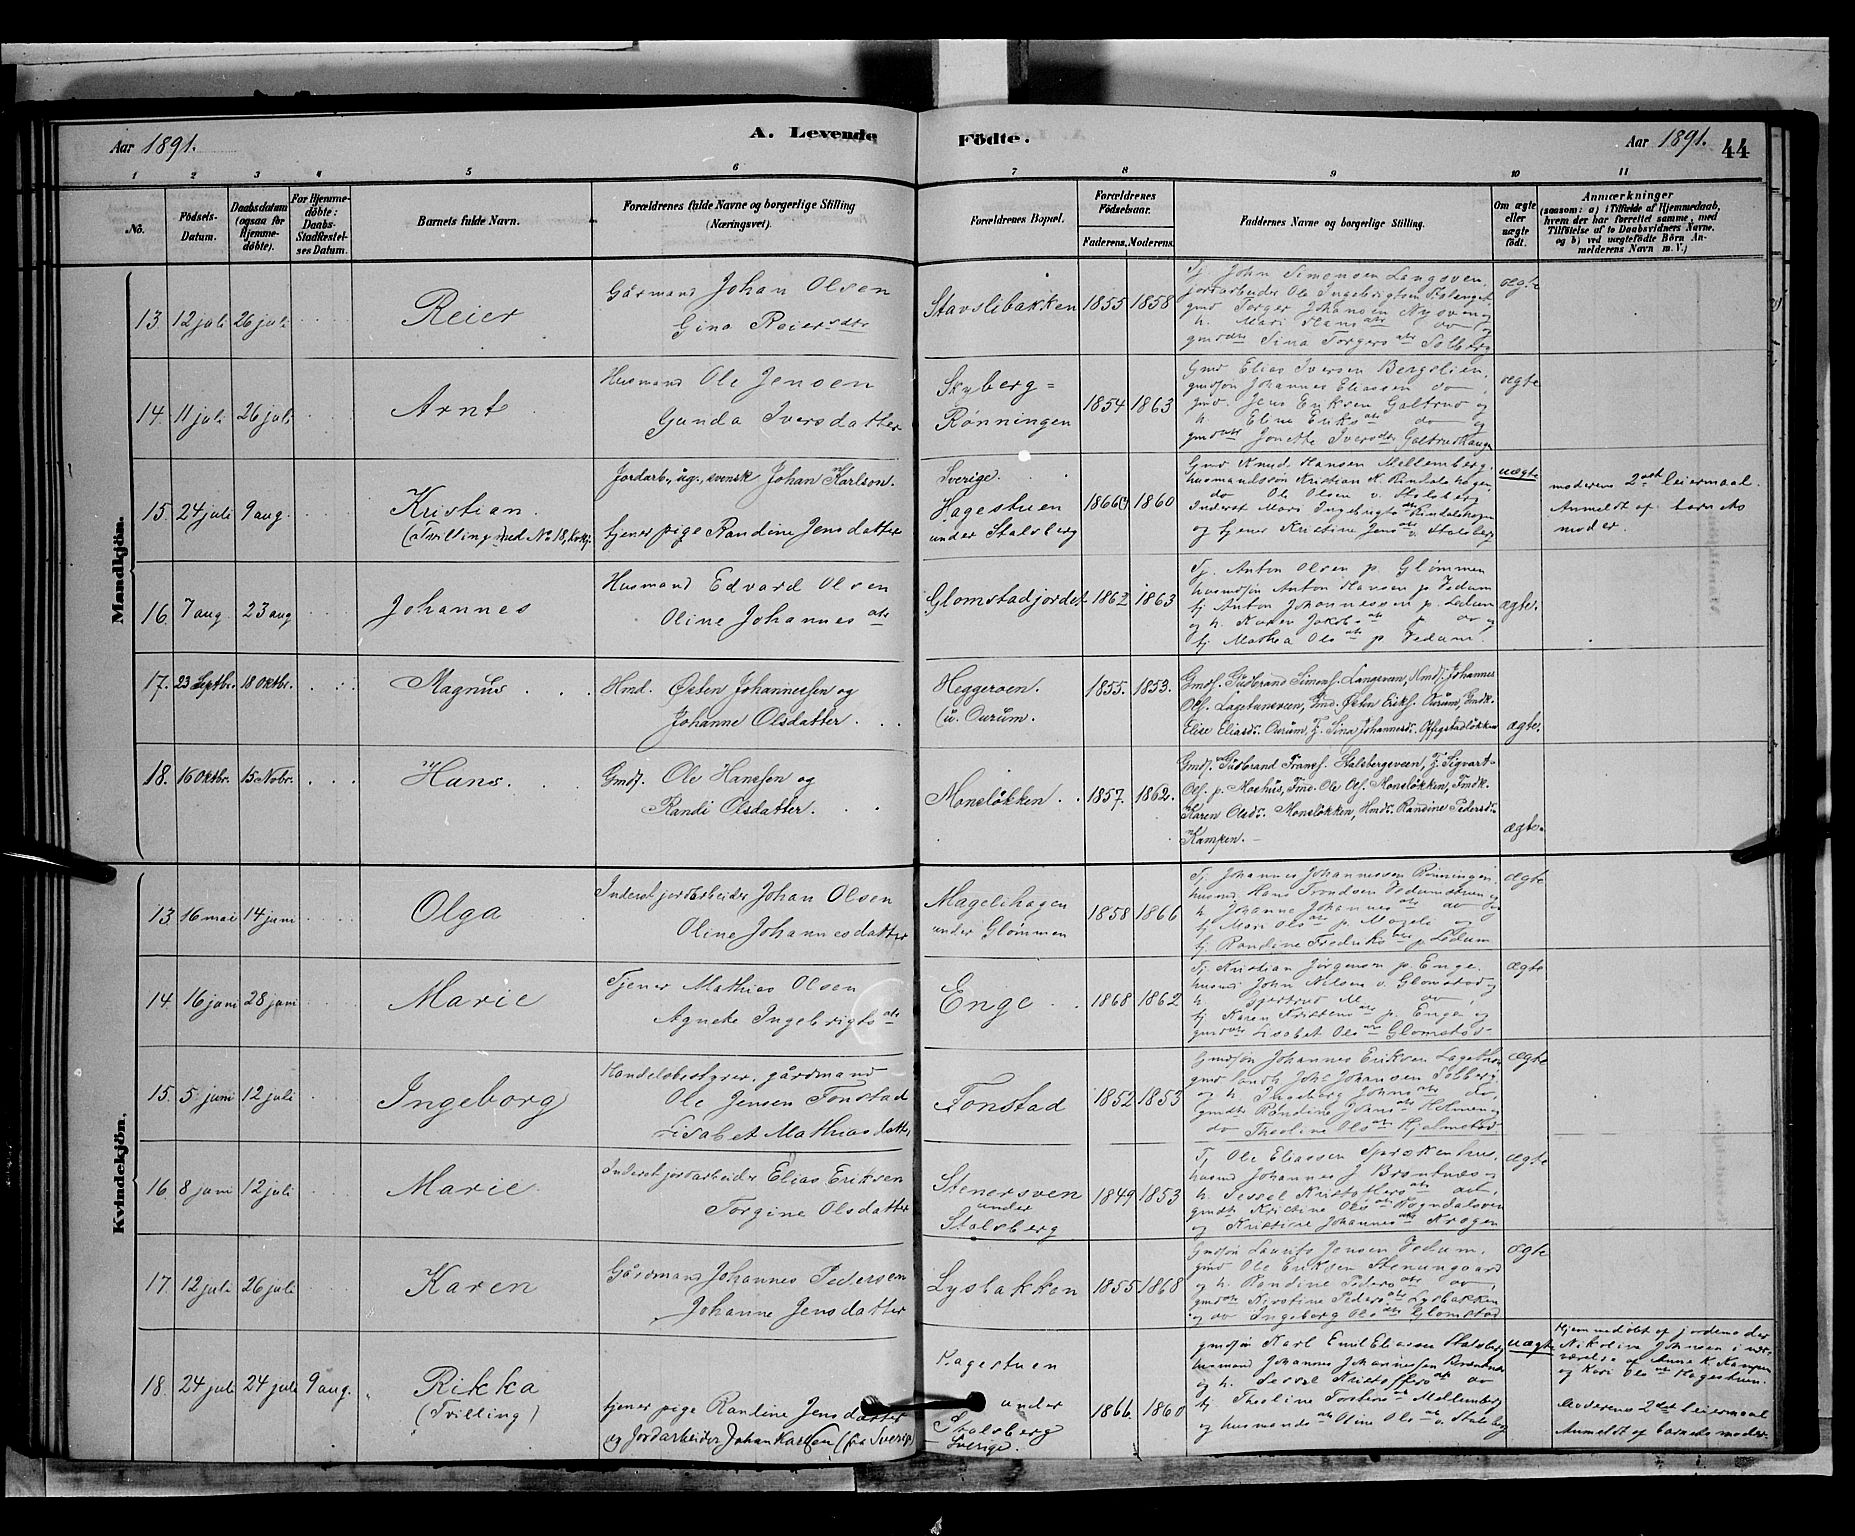 Aar 1891.
A. Levende Födte.
Aar 1891.
44
1 2 3 4 5 6 7 8 9 10 11
No.
Födsels-Datum.
Daabsdatum (ogsaa for Hjemme-döbte).
For Hjemme-döbte: Daabs-Stadfæstel-ses Datum.
Barnets fulde Navn.
Forældrenes fulde Navne og borgerlige Stilling (Næringsvei).
Forældrenes Bopæl.
Forældrenes Födselsaar.
Faderens. Moderens.
Faddernes Navne og borgerlige Stilling.
Om ægte eller uægte födt.
Anmærkninger
(saasom: a) i Tilfælde af Hjemmedaab,
hvem der har forrettet samme, med
Tilföielse af to Daabsvidners Navne,
og b) ved uægtefödte Börn An-
melderens Navn m. V.)
Mandkjön.
13 12 juli 26 juli
Reier
Gårmand Johan Olsen
Gina Reiersdtr
Stavslibakken 1855 1858
Tj. John Simensen Langsven,
jordarbeider Ole Ingebrigtsen
gmd Torger Johansen Nysven og
h. Mari Hansdtr do og
gmddtr Sina Torgersdtr Solberg
ægte
14. 11 juli 26 juli
Arnt
Husmand Ole Jensen
Gunda Iversdatter
Skyberg=
Rønningen
1854 1863
Gmd Elias Iversen Bergslien,
gmdsøn Johannes Eliassen do,
gmd. Jens Eriksen Galtrud og
h. Eline Eriksdtr do og
gmddtr Jonette Iversdtr Galtrudhaugen
ægte
15. 24 juli 9 aug.
Kristian.
(Tvilling med No 18, kvkj.
Jordarb., ug., svensk Johan Karlson.
tjener pige Randine Jensdatter
Sverige.
Hagestuen
under Stalsberg
1866 1860
Gmd Knud Hansen Mellemberg,
husmandssøn Kristian K. Rindalshagen,
do Ole Olsen v. Stalsberg
Inderst Mari Ingebrigtsdtr Rindalshagen
og tjener Kristine Jensdtr v. Stalsberg
uægte
moderens 2det leiermaal.
Anmeldt af barnets
moder.
16. 7 aug. 23 aug
Johannes
Husmand Edvard Olsen
Oline Johannesdtr
Glomstadjordet 1862 1863
Tj. Anton Olsen p. Glømmen
husmdsøn Anton Hansen p. Vedum
tj. Anton Johannessen p. Ledum
og h. Karen Jakobsdtr p. do og
tj. Mathea Olsdtr p. Vedum,
ægte.
17. 23 Septbr. 18 Oktbr.
Magnus
Hmd. Østen Johannessen og
Johanne Olsdatter.
Heggeroen.
(u. Ourum.
1855. 1853.
Gmds. Gudbrand Simens. Langsveen, Hmds. Johannes
Ols. Lagetunsveen, Gmd. Østen Eriks. Ourum, Gmdk.
Elise Eliasd. Ourum, Tj. Sina Johannesd. Opsigstadløkken
ægte.
18. 16 Oktbr. 15 Nobr.
Hans.
Gmds. Ole Hanssen og
Randi Olsdatter.
Monsløkken. 1857. 1862.
Gmds. Gudbrand Frants. Stalsbergsveen, Tj. Sigvart
Ols. p. Moehus, Gmd. Ole Ols. Monsløkken, Gmdk.
Karen Olsd. Monsløkken, Hmds. Randine Pedersd.
Kampen.
ægte.
Kvindekjön.
13. 16 mai 14 juni
Olga
Inderst jordarbeider Johan Olsen
Oline Johannesdatter
Magelihagen
under Glømmen
1858 1866
Tj. Johannes Johannessen Rønningen,
husmd Hans Trondsen Vedumstuen og
h. Johanne Johannesdtr do og
tj. Mari Olsdtr p. Mageli og
tj. Randine Fredriksdtr p. Ledum
ægte
14. 16 juni 28 juni
Marie
Tjener Mathias Olsen
Agnete Ingebrigtsdtr
Enge 1868 1862
Tj. Kristian Jørgensen p. Enge.
husmd John Nilsen v. Glomstad og
h. Gjertrud M. do,
tj. Karen Kristensdtr p. Enge og
gmddtr Lisabet Olsdtr Glomstad
ægte
15. 5 juni 12 juli
Ingeborg
Handelsbestyrer, gårdmand
Ole Jensen Tonstad
Lisabet Mathiasdatter
Tonstad 1852 1853
Gmdsøn Johannes Eriksen
gmd landh. Johs Johansen Solberg
og h. Ingeborg Johnsdtr do,
gmdts Randine Johnsdtr Holmen og
do Theoline Olsdtr Hjelmstad
ægte
16. 8 juni 12 juli
Marie
Inderst jordarbeider Elias Eriksen
Torgine Olsdatter
Stenersven
under
Stalsberg
1849 1853
Tj. Ole Eliassen Sprækenhus,
husmd Johannes J Brøntnes og
h. Sessel Kristoffersdtr do,
gmdt Kristine Olsdtr
og Kristine Johannesdtr Krogen
ægte
17. 12 juli 26 juli
Karen
Gårdmand Johannes Pedersen
Johanne Jensdatter
Lysbakken 1855 1868
Gmdsøn Laurits Jensen Vedum,
gmd Ole Eriksen Stenumgaard
og h. Randine Pedersdtr do,
gmddtr Kirstine Pedersdtr Lysbakken
og do Ingeborg Olsdtr Glomstad
ægte
18. 24 juli 24 juli 9 aug.
Rikka
(Tvilling)
tjener pige Randine Jensdatter
og Jordarbeider Johan Karlsen (fra Sverige)
Hagestuen
under
Stalsberg
Sverige.
1866. 1860
gmdsøn Karl Emil Eliassen Stalsberg
husmand Johannes Johannessen Brøntnes
og h. Sessel Kristoffersdtr do
tj. Theoline Torstensdtr Mellemberg
og husmands dtr Oline Olsdtr v. Stalsberg
uægte
Hjemmedøbt af jordemoder
Nikoline Johnsen i nær-
værelse af Anne K. Kampen
og Kari Olsdtr Hagestuen.
Moderens 2det leiermaal
Anmeldt af barnets moder.